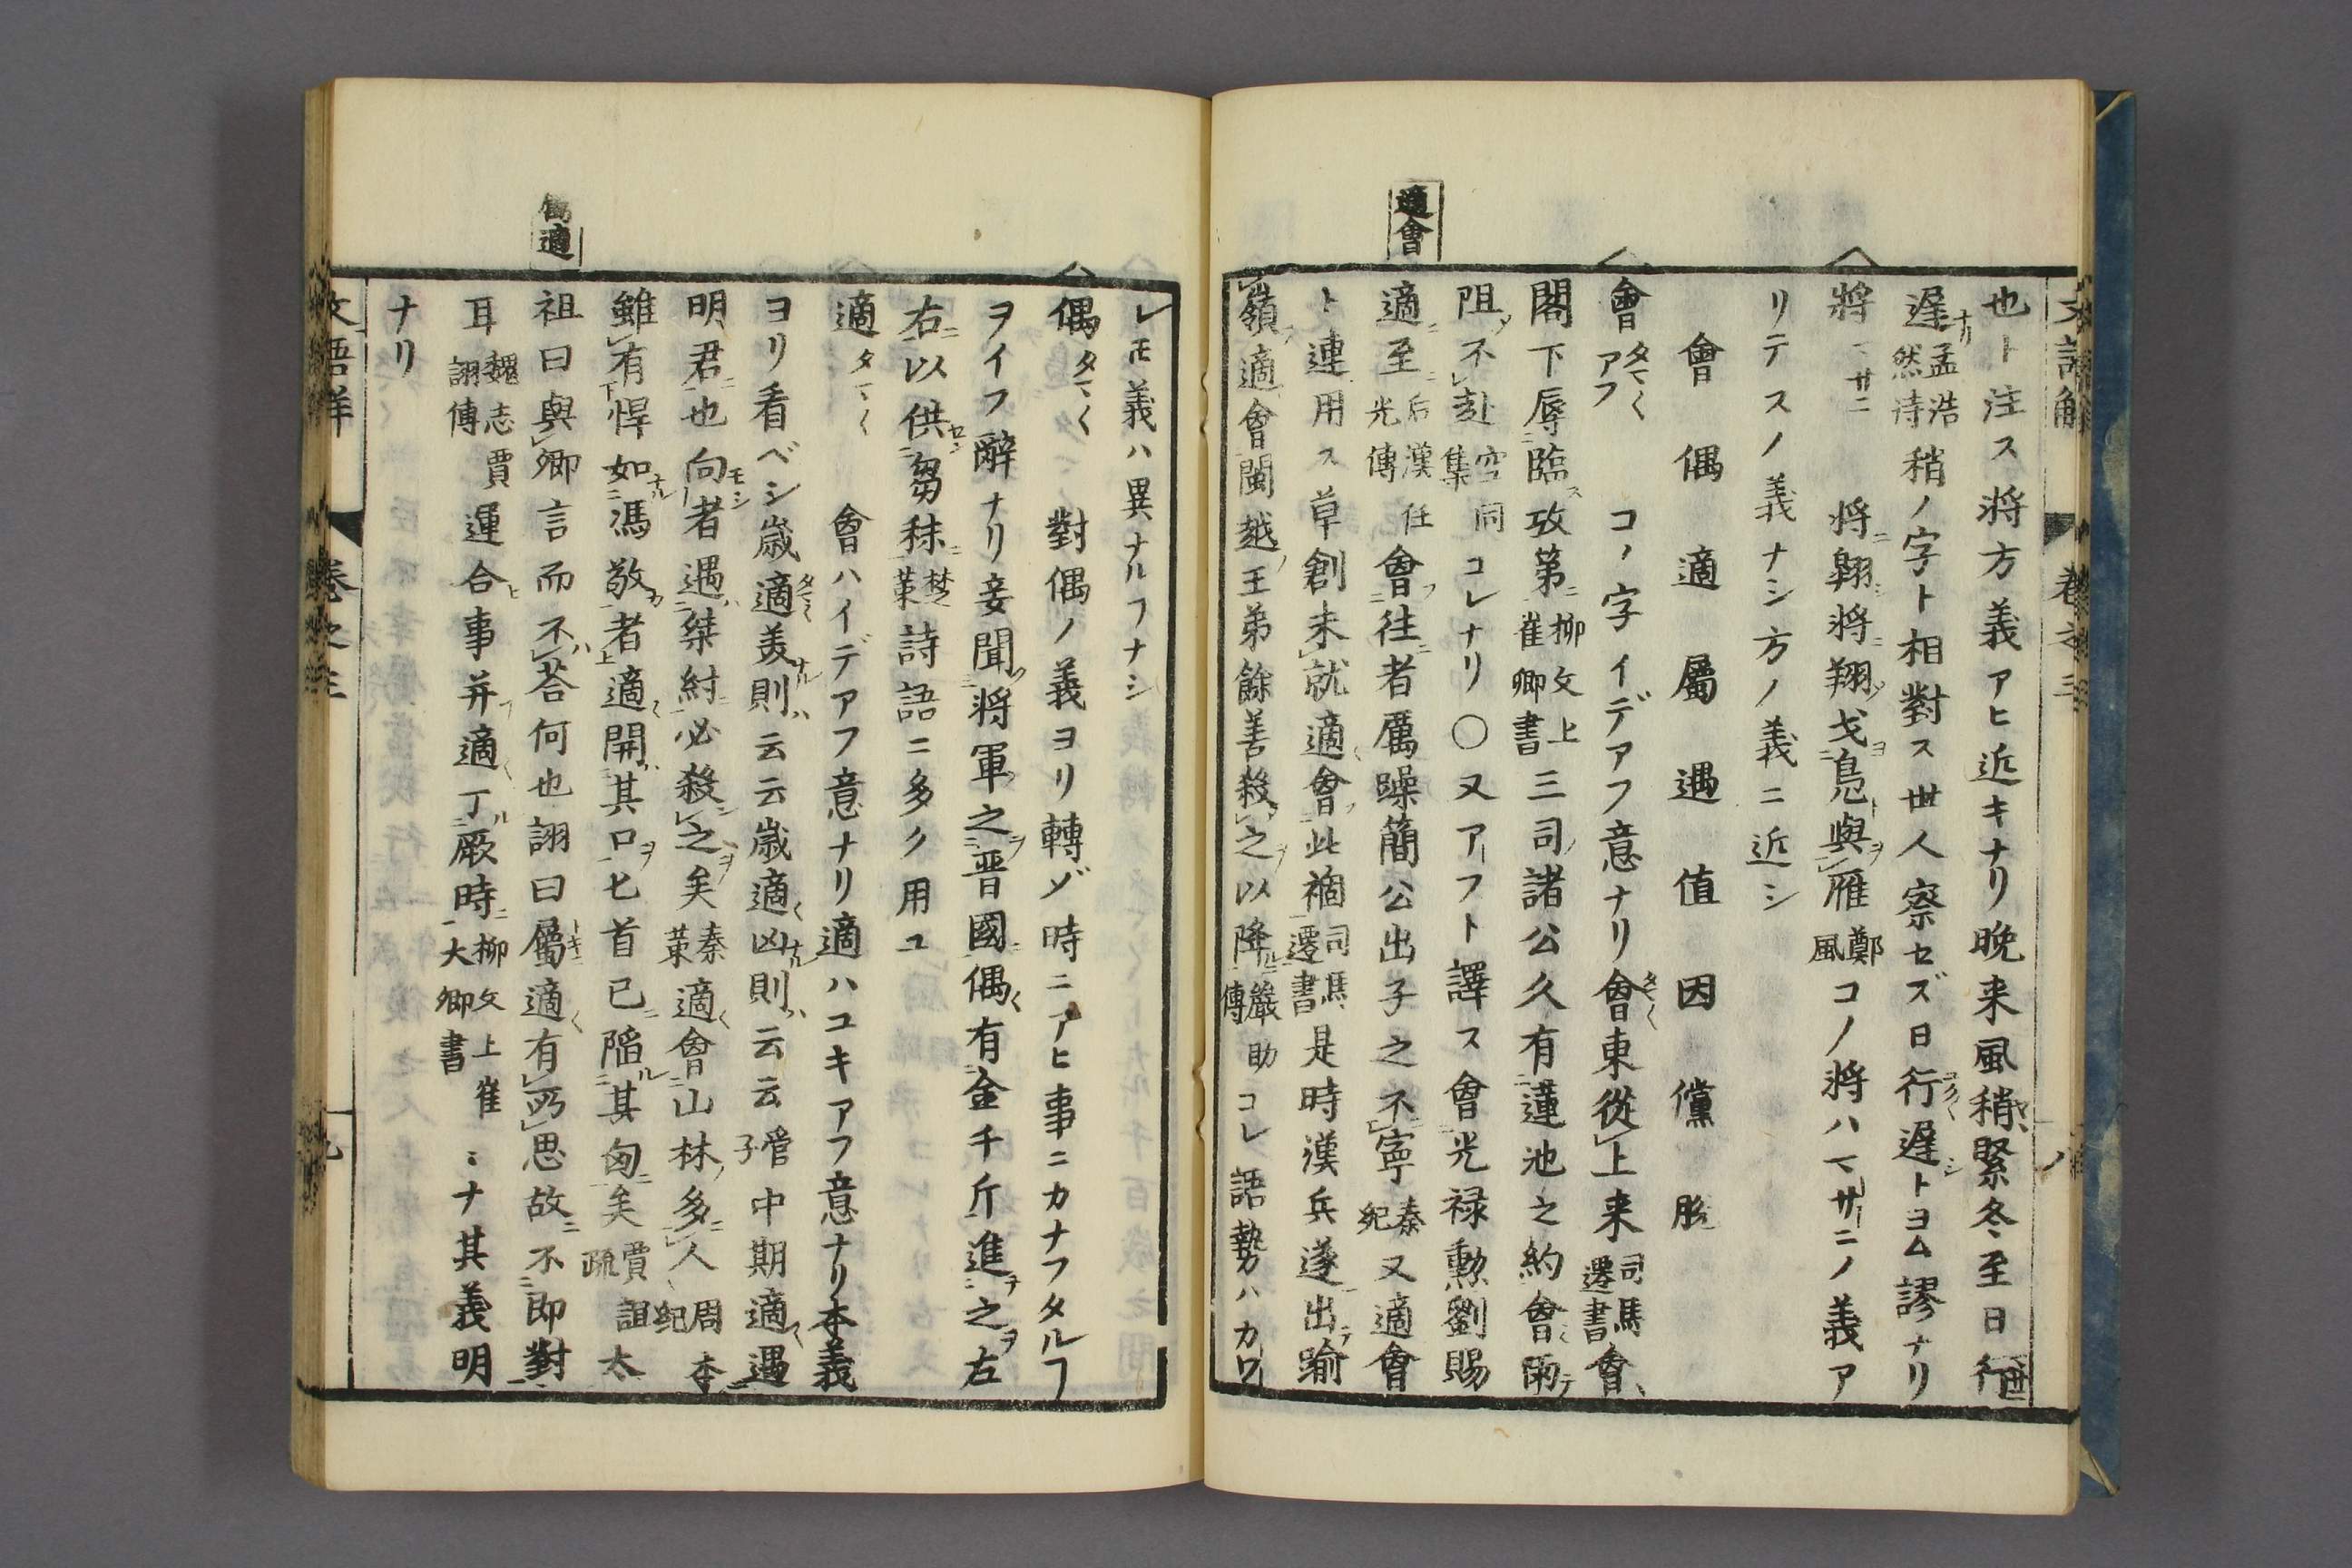 適會
也ト注ス將方義アヒ近キナリ晩来風稍緊冬至日行
遅孟浩然詩稍ノ字ト相對ス世人察セズ日行遅トヨム謬ナリ
將マサニ 將翺將翔弋鳧與雁鄭風コノ將ハマサニノ義ア
リテスノ義ナシ方ノ義ニ近シ
會 偶 適 屬 遇 値 因 儻
會タマ〱アフ コノ字イデアフ意ナリ會東從上来司馬遷書會
閣下辱臨攻第柳文上崔卿書三司諸公久有蓮池之約會雨
阻不赴空同集コレナリ〇又アフト譯ス會光禄勲劉賜
適至后漢任光傳會往者厲躁簡公出子之不寧秦紀又適會
ト連用ス草創未就適會此禍司馬遷書是時漢兵遂出踰
嶺適會閩越王弟餘善殺之以降嚴助傳コレ語勢ハカワ
レ𪜈義ハ異ナルヿナシ
偶タマ〱 對偶ノ義ヨリ轉ゾ時ニアヒ事ニカナフタルヿ
ヲイフ辭ナリ妾聞將軍之晋國偶有金千斤進之左
右以供芻秣楚策詩語ニ多ク用ユ
適タマ〱 會ハイデアフ意ナリ適ハユキアフ意ナリ本義
ヨリ看ベシ歳適美則云云歳適凶則云云管子中期適遇
明君也向者遇桀紂必殺之矣秦策適會山林多人周本紀
雖有悍如馮敬者適開其口匕首已陥其匈矣賈誼疏太
祖曰與卿言而不荅何也詡曰屬適有所思故不即對
耳魏志賈詡傳運合事并適丁厥時柳文上崔大卿書ミナ其義明
ナリ